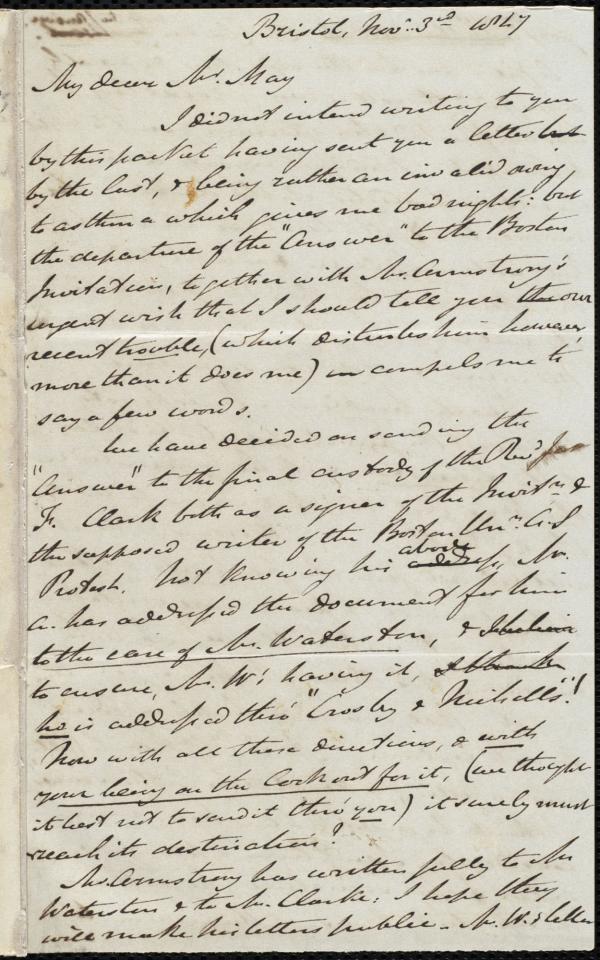 Bristol, Nov. 3rd 1847
My dear Mr. May
I did not intend writing to you
by this packet having sent you a letter but
by the last, & being rather an invalid owing
to asthma which gives me bad nights: but
the departure of the "Answer" to the Boston
Invitation, together with Mr. Armstrong's
urgent wish that I should tell you the our
recent trouble, (which disturbs him however
more than it does me) compels me to
say a few words.
We have decided on sending the
"Answer" to the final custody of the Revd. Jas
F. Clark both as a signer of the Invitn. &
the supposed writer of the Boston Unn. A.S
Protest. Not knowing his abode address, Mr.
A. has addressed the document for him
to the care of Mr. Waterston, & I believe
to ensure, Mr. W's having it,
he is addressed thro' "Crosby & Nicholls"!
Now with all these directions, & with
your being on the look out for it, (we thought
it best not to send it thro' you) it surely must
reach its destination?
Mr. Armstrong has written fully to Mr
Waterston & to Mr. Clarke: I hope they
will make his letters public - Mr. W.'s letter